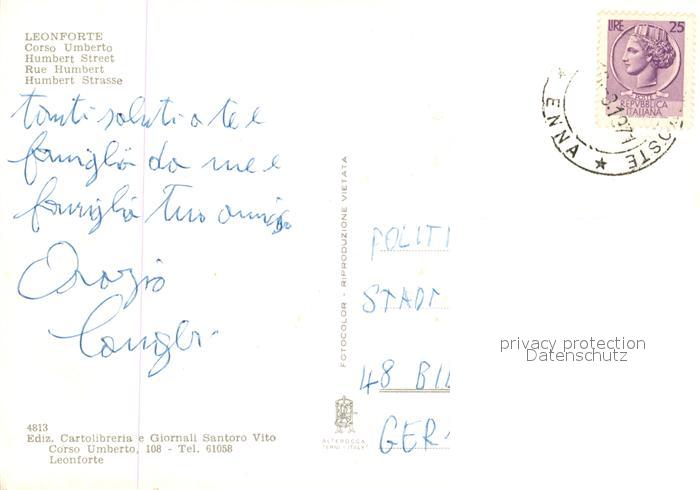 LEONFORTE
Corso Umberto
Humbert Street
Rue Humbert
Humbert Strasse
tanti saluti a te e
famiglia da me e
famiglia tuo amico
Orazio
FOTOCOLOR - RIPRODUZIONE VIETATA
LIRE 25
POSTE
REPVBBLICA
ITALIANA
ENNA
POLITI
STADT
48 BIL
GER
privacy protection
Datenschutz
4813
Ediz. Cartolibreria e Giornali Santoro Vito
Corso Umberto, 108 - Tel. 61058
Leonforte
ALTEROCCA
TERNI - ITALY